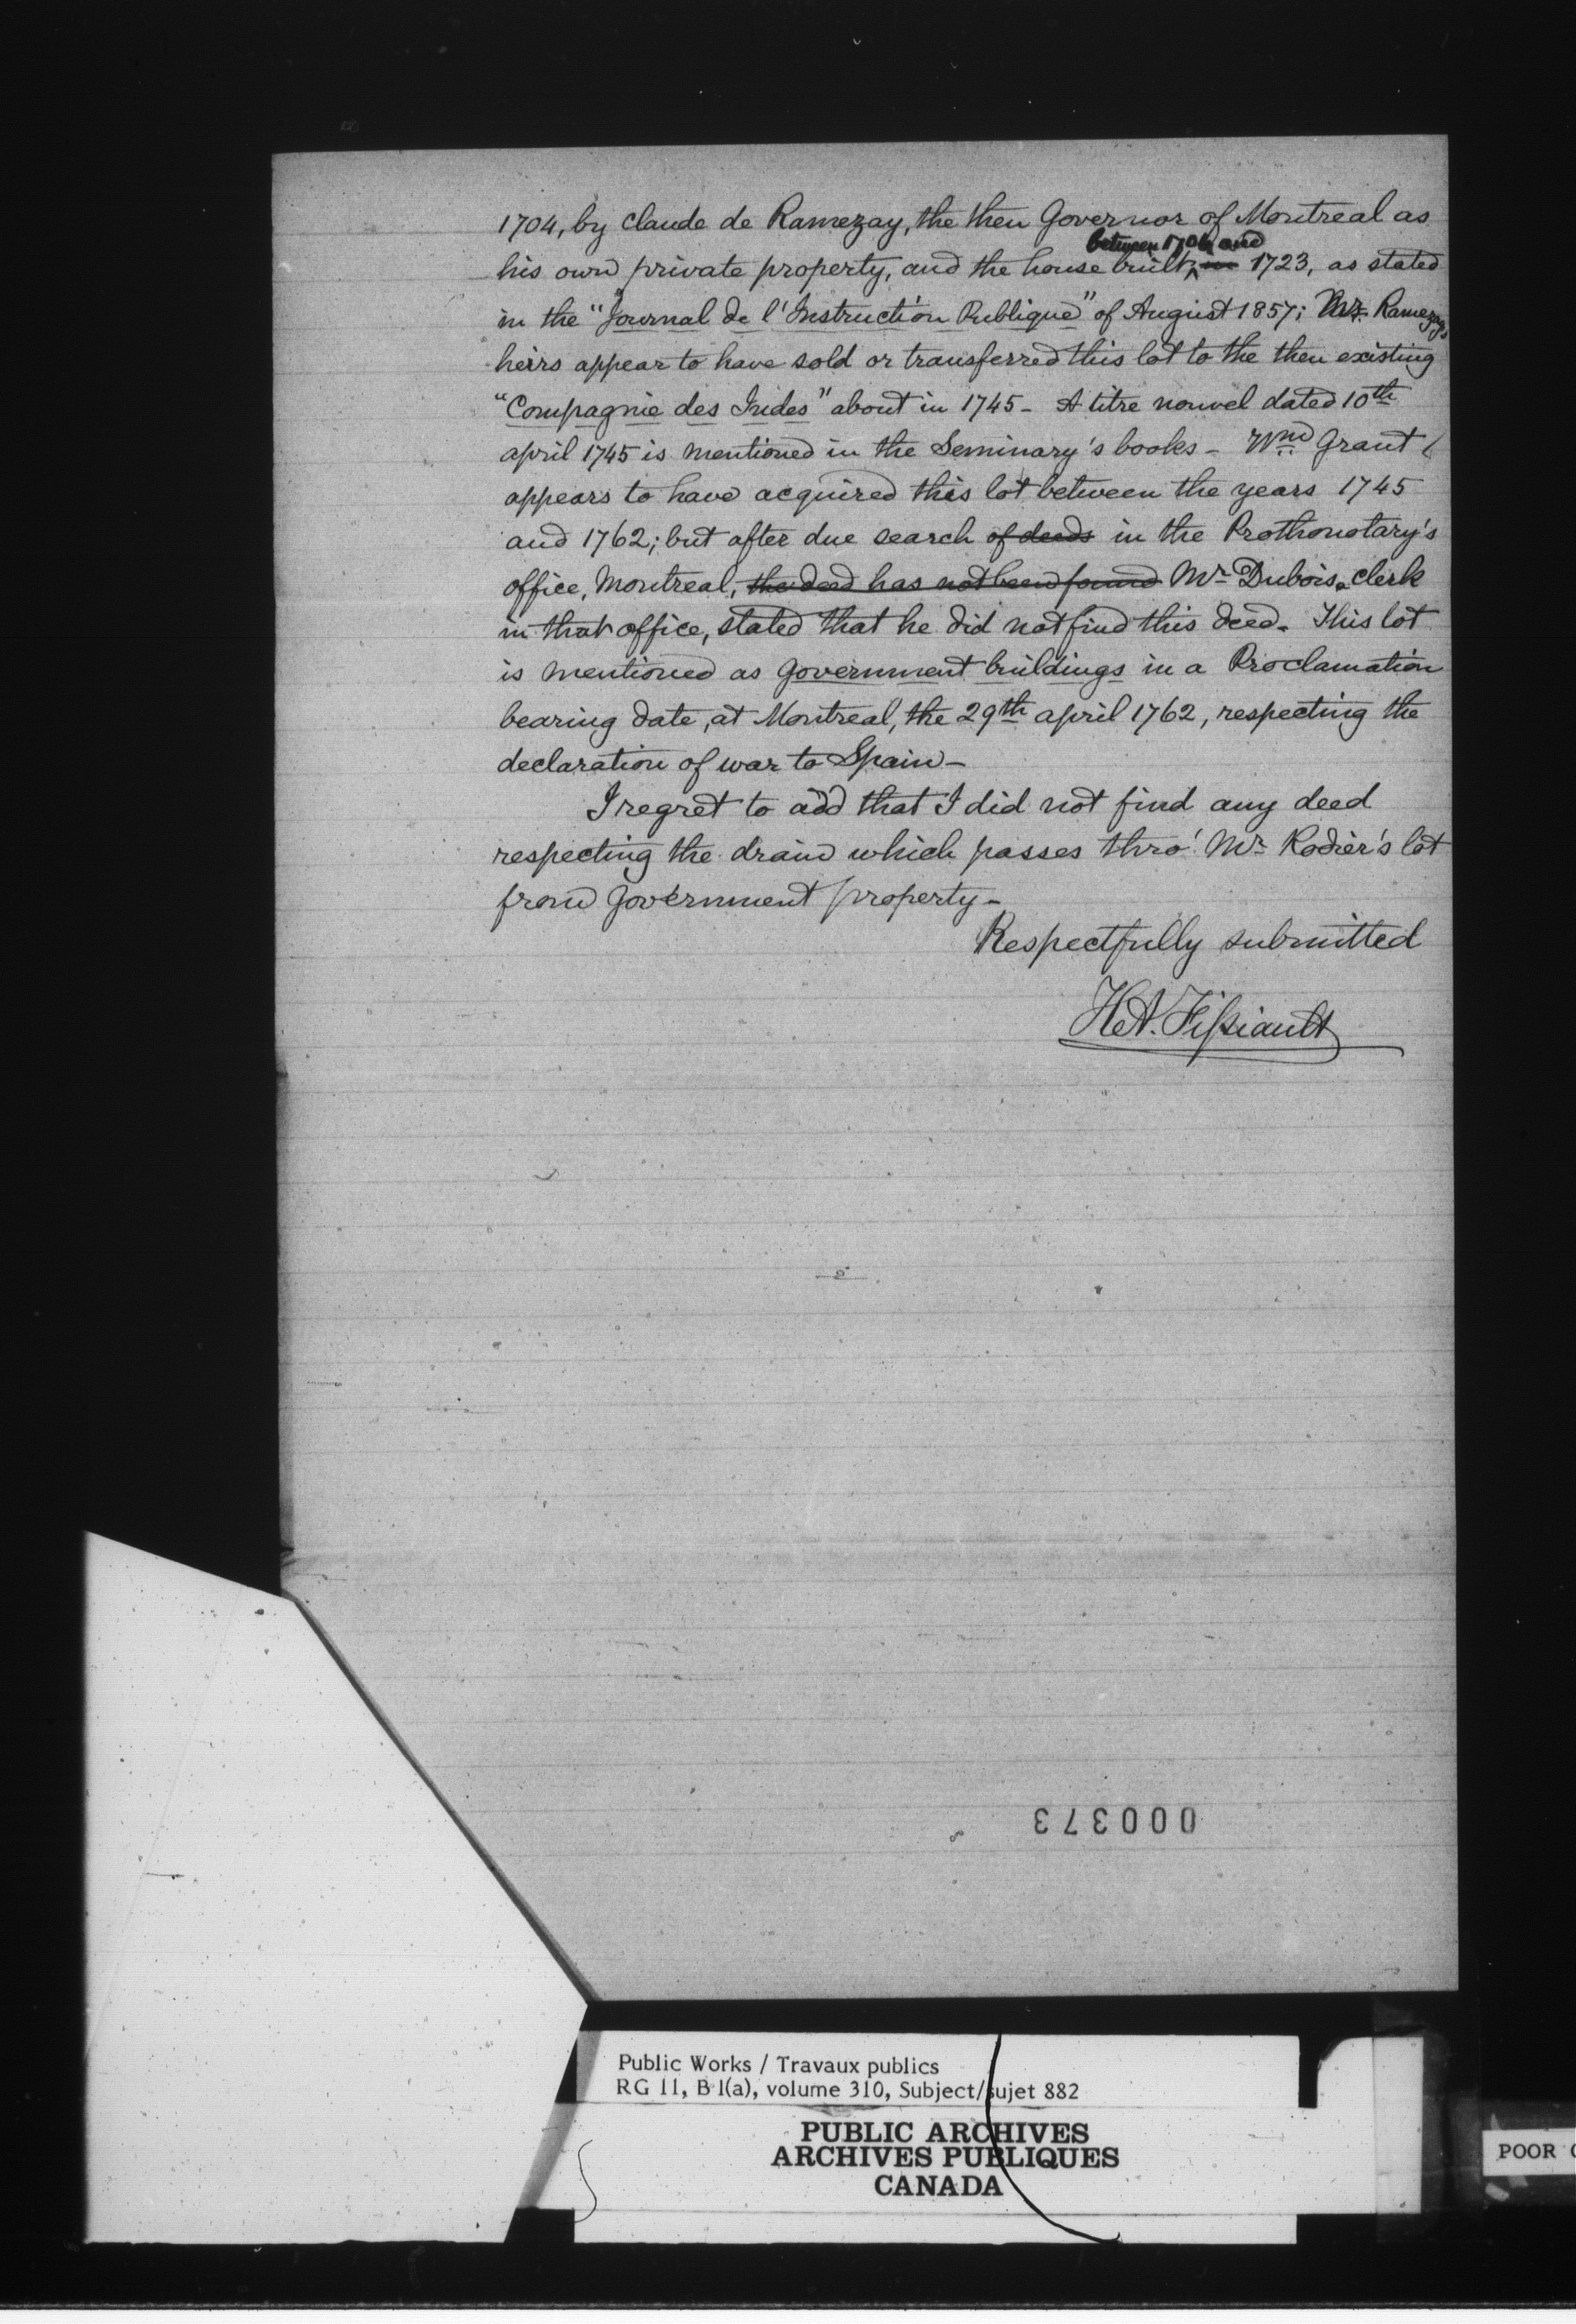 1704, by Claude de Ramezay, the then Governor of Montreal as
his own private property, and the house built between 1704 and 1723, as stated
in the "Journal de l'Instruction Publique" of August 1857; Mr. Ramezay's
heirs appear to have sold or transferred this lot to the then existing
"Compagnie des Indes" about in 1745 - A titre nouvel dated 10th
april 1745 is mentioned in the Seminary's books - Wm Grant
appears to have acquired this lot between the years 1745
and 1762; but after due search of deeds in the Prothonotary's
office, Montreal, the deed has not been found Mr Dubois, clerk
in that office, stated that he did not find this deed. This lot
is mentioned as government buildings in a Proclamation
bearing date, at Montreal, the 29th april 1762, respecting the
declaration of war to Spain -
I regret to add that I did not find any deed
respecting the drain which passes thro' Mr Rodier's lot
from Government property -
Respectfully submitted
H.A. Fissiault
000373
Public Works / Travaux publics
RG 11, B 1(a), volume 310, Subject/sujet 882
PUBLIC ARCHIVES
ARCHIVES PUBLIQUES
CANADA
POOR